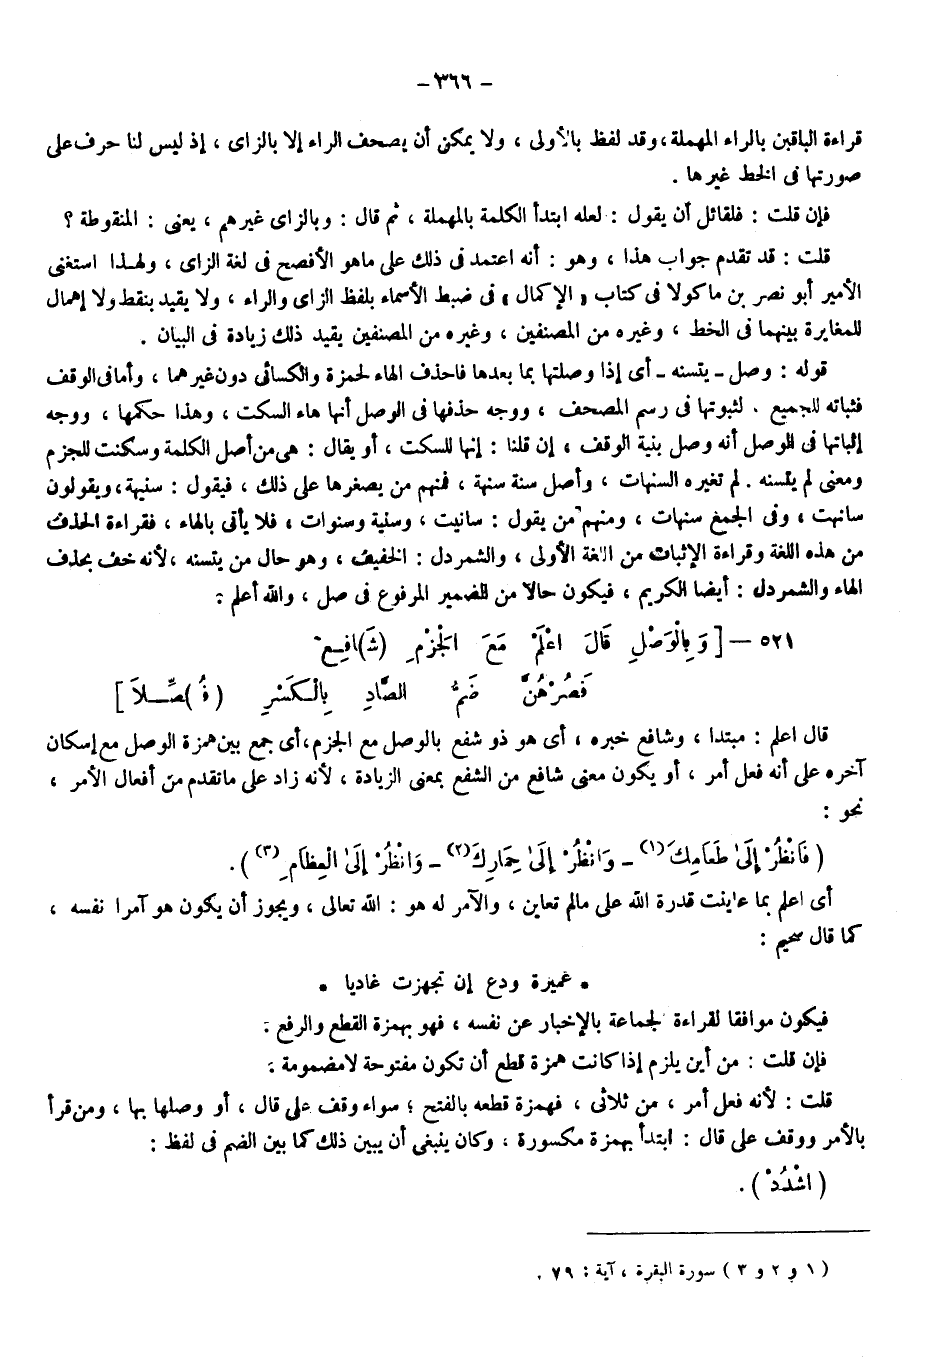 – ٣٦٦ –
قراءة الباقين بالراء المهملة، وقد لفظ بالأولى ، ولا يمكن أن يصحف الراء إلا بالزاى ، إذ ليس لنا حرف على
صورتها فى الخط غيرها .
فإن قلت : فلقائل أن يقول : لعله ابتدأ الكلمة بالمهملة ، ثم قال : وبالزاى غيرهم ، يعنى : المنقوطة ؟
قلت : قد تقدم جواب هذا ، وهو : أنه اعتمد فى ذلك على ماهو الأفصح فى لغة الزاى ، ولهذا استغنى
الأمير أبو نصر بن ماكولا فى كتاب « الإكمال » فى ضبط الأسماء بلفظ الزاى والراء ، ولا يقيد بنقط ولا إهمال
للمغايرة بينهما فى الخط ، وغيره من المصنفين ، وغيره من المصنفين يقيد ذلك زيادة فى البيان .
قوله : وصل – يتسنه – أى إذا وصلتها بما بعدها فاحذف الهاء لحمزة والكسائى دون غيرهما ، وأما فى الوقف
فثباته للجميع . لثبوتها فى رسم المصحف ، ووجه حذفها فى الوصل أنها هاء السكت ، وهذا حكمها ، ووجه
إثباتها فى الوصل أنه وصل بنية الوقف ، إن قلنا : إنها للسكت ، أو يقال : هى من أصل الكلمة وسكنت للجزم
ومعنى لم يتسنه . لم تغيره السنهات ، وأصل سنة سنهة ، فمنهم من يصغرها على ذلك ، فيقول : سنيهة، ويقولون
سانهت ، وفى الجمع سنهات ، ومنهم من يقول : سانيت ، وسنية وسنوات ، فلا يأتى بالهاء ، فقراءة الحذف
من هذه اللغة وقراءة الإثبات من اللغة الأولى ، والشمردل : الخفيف ، وهو حال من يتسنه ، لأنه خف بحذف
الهاء والشمردل : أيضا الكريم ، فيكون حالا من الضمير المرفوع فى صل ، والله أعلم :
٥٢١ – [ وَبِالْوَصْلِ قَالَ اعْلَمْ مَعَ الْجَزْمِ (شَ)افِعٌ
فَصُرْهُنَّ ضَمُّ الصَّادِ بِالْكَسْرِ (فُ)صِّلَا ]
قال اعلم : مبتدا ، وشافع خبره ، أى هو ذو شفع بالوصل مع الجزم، أى جمع بين همزة الوصل مع إسكان
آخره على أنه فعل أمر ، أو يكون معنى شافع من الشفع بمعنى الزيادة ، لأنه زاد على ماتقدم من أفعال الأمر ،
نحو :
( فَانْظُرْ إِلَىٰ طَعَامِكَ (١) – وَانْظُرْ إِلَىٰ حِمَارِكَ (٢) – وَانْظُرْ إِلَىٰ الْعِظَامِ (٣) ) .
أى اعلم بما عاينت قدرة الله على مالم تعاين ، والآمر له هو : الله تعالى ، ويجوز أن يكون هو آمرا نفسه ،
كما قال سحيم :
• عميرة ودع إن تجهزت غاديا •
فيكون موافقا لقراءة لجماعة بالإخبار عن نفسه ، فهو بهمزة القطع والرفع :
فإن قلت : من أين يلزم إذا كانت همزة قطع أن تكون مفتوحة لامضمومة :
قلت : لأنه فعل أمر ، من ثلاثى ، فهمزة قطعه بالفتح ؛ سواء وقف على قال ، أو وصلها بها ، ومن قرأ
بالأمر ووقف على قال : ابتدأ بهمزة مكسورة ، وكان ينبغى أن يبين ذلك كما بين الضم فى لفظ :
( اشْدُدْ ) .
( ١ و ٢ و ٣ ) سورة البقرة ، آية : ٧٩ .